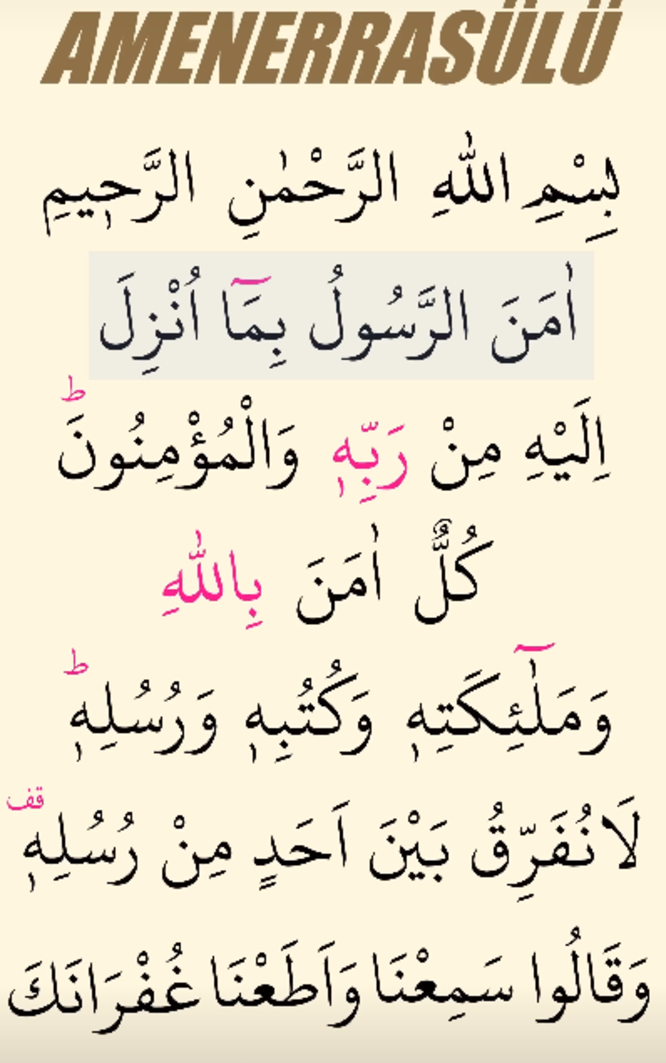 AMENERRASÜLÜ
بِسْمِ اللّٰهِ الرَّحْمٰنِ الرَّح۪يمِ
اٰمَنَ الرَّسُولُ بِمَٓا اُنْزِلَ
اِلَيْهِ مِنْ رَبِّه۪ وَالْمُؤْمِنُونَۜ
كُلٌّ اٰمَنَ بِاللّٰهِ
وَمَلٰٓئِكَتِه۪ وَكُتُبِه۪ وَرُسُلِه۪ۜ
لَانُفَرِّقُ بَيْنَ اَحَدٍ مِنْ رُسُلِه۪ قف
وَقَالُوا سَمِعْنَا وَاَطَعْنَا غُفْرَانَكَ